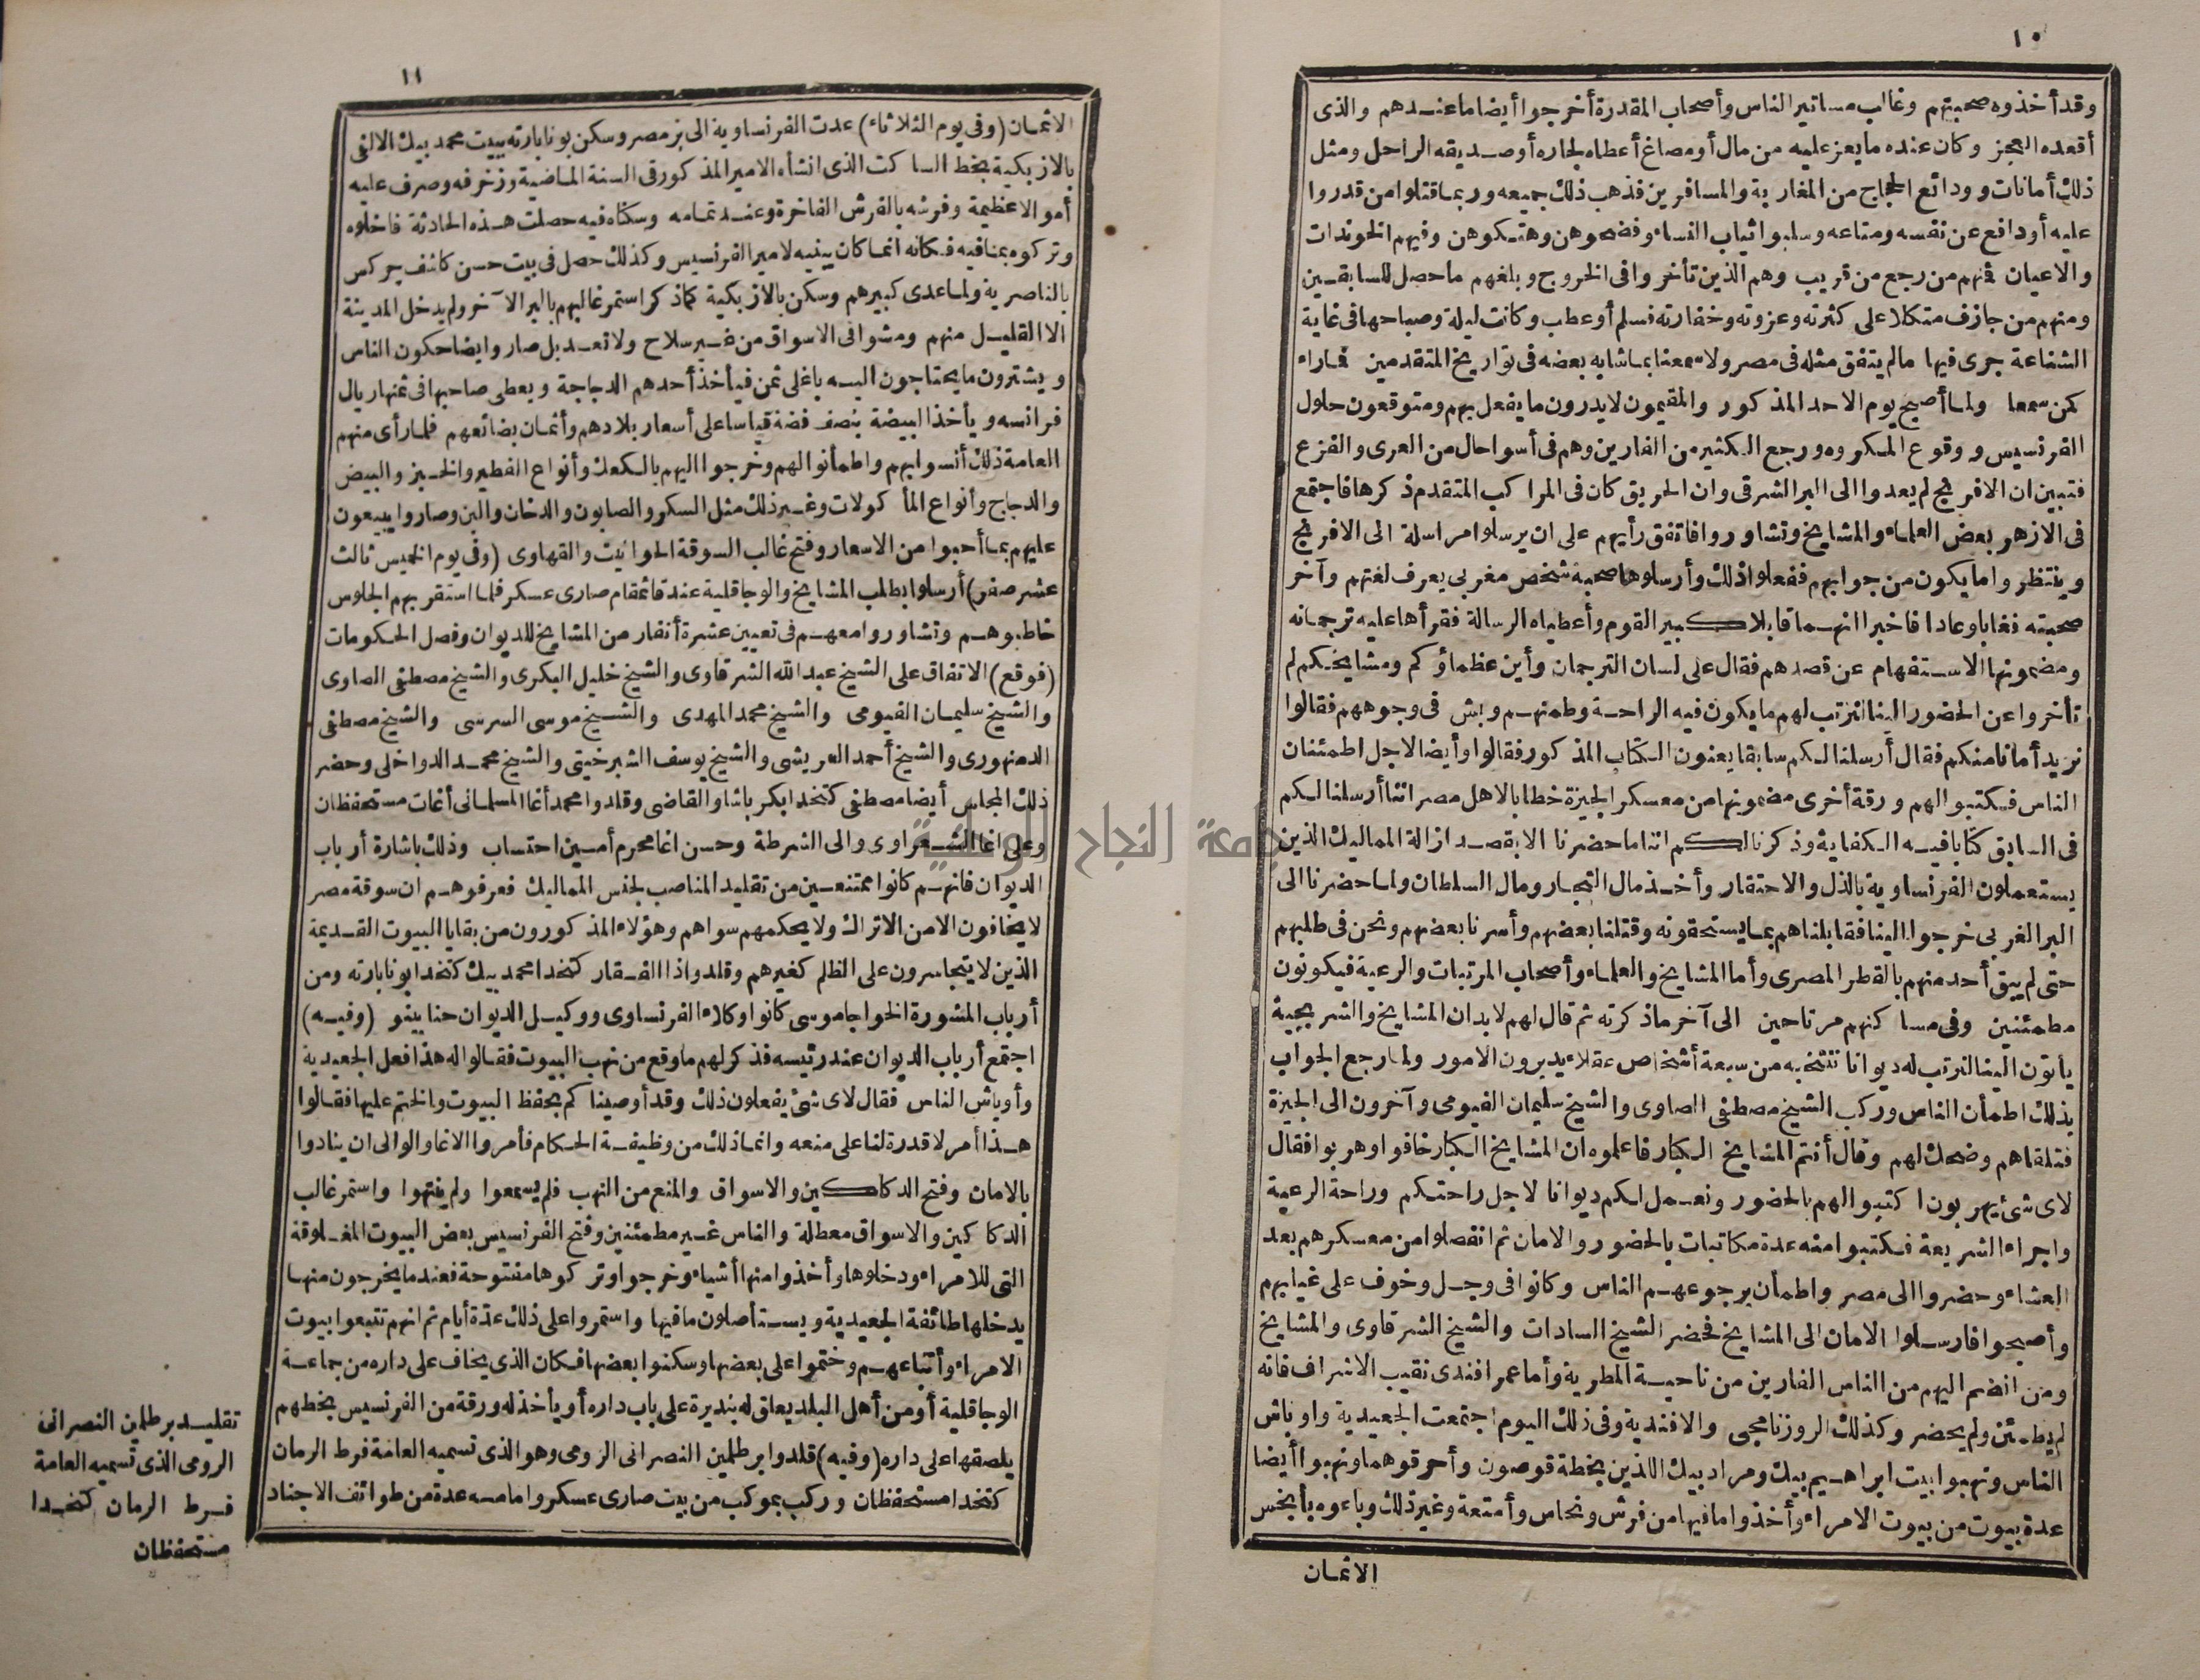 ١٠
وقد أخذوه صحبتهم وغالب مساتير الناس وأصحاب المقدرة أخرجوا أيضا ما عندهم والذى
أقعده العجز وكان عنده ما يعز عليه من مال أو مصاغ أعطاه لجاره أو صديقه الراحل ومثل
ذلك أمانات وودائع الحجاج من المغاربة والمسافرين فذهب ذلك جميعه وربما قتلوا من قدروا
عليه أو دافع عن نفسه ومتاعه وسلبوا ثياب النساء وفضحوهن وهتكوهن وفيهم الخوندات
والاعيان فمنهم من رجع من قريب وهم الذين تأخروا فى الخروج وبلغهم ما حصل للسابقين
ومنهم من جازف متكلا على كثرته وعزوته وخفارته فسلم أو عطب وكانت ليلة وصباحها فى غاية
الشناعة جرى فيها ما لم يتفق مثله فى مصر ولا سمعنا بما شابه بعضه فى تواريخ المتقدمين فما راء
كمن سمعا ولما أصبح يوم الاحد المذكور والمقيمون لا يدرون ما يفعل بهم ومتوقعون حلول
الفرنسيس ووقوع المكروه ورجع الكثير من الفارين وهم فى أسوا حال من العرى والفزع
فتبين ان الافرنج لم يعدوا الى البر الشرقى وان الحريق كان فى المراكب المتقدم ذكرها فاجتمع
فى الازهر بعض العلماء والمشايخ وتشاوروا فاتفق رأيهم على ان يرسلوا مراسلة الى الافرنج
وينتظروا ما يكون من جوابهم ففعلوا ذلك وأرسلوها صحبة شخص مغربى يعرف لغتهم وآخر
صحبته فغابا وعادا فاخبرا انهما قابلا كبير القوم وأعطياه الرسالة فقرأها عليه ترجمانه
ومضمونها الاستفهام عن قصدهم فقال على لسان الترجمان وأين عظماؤكم ومشايخكم لم
تأخروا عن الحضور الينا لنرتب لهم ما يكون فيه الراحة وطمنهم وبش فى وجوههم فقالوا
نريد أمانا منكم فقال أرسلنا لكم سابقا يعنون الكتاب المذكور فقالوا وأيضا لاجل اطمئنان
الناس فكتبوا لهم ورقة أخرى مضمونها من معسكر الجيزة خطابا لاهل مصر اننا أرسلنا لكم
فى السابق كتابا فيه الكفاية وذكرنا لكم اننا ما حضرنا الا بقصد ازالة المماليك الذين
يستعملون الفرنساوية بالذل والاحتقار وأخذ مال التجار ومال السلطان ولما حضرنا الى
البر الغربى خرجوا الينا فقابلناهم بما يستحقونه وقتلنا بعضهم وأسرنا بعضهم ونحن فى طلبهم
حتى لم يبق أحد منهم بالقطر المصرى وأما المشايخ والعلماء وأصحاب المرتبات والرعية فيكونون
مطمئنين وفى مساكنهم مرتاحين الى آخر ما ذكرته ثم قال لهم لا بد ان المشايخ والشربجية
يأتون الينا لنرتب له ديوانا ننتخبه من سبعة أشخاص عقلاء يدبرون الامور ولما رجع الجواب
بذلك اطمأن الناس وركب الشيخ مصطفى الصاوى والشيخ سليمان الفيومى وآخرون الى الجيزة
فتلقاهم وضحك لهم وقال أنتم المشايخ الكبار فاعلموه ان المشايخ الكبار خافوا وهربوا فقال
لاى شئ يهربون اكتبوا لهم بالحضور ونعمل لكم ديوانا لاجل راحتكم وراحة الرعية
واجراء الشريعة فكتبوا منه عدة مكاتبات بالحضور والامان ثم انفصلوا من معسكرهم بعد
العشاء وحضروا الى مصر واطمأن برجوعهم الناس وكانوا فى وجل وخوف على غيابهم
وأصبحوا فارسلوا الامان الى المشايخ فحضر الشيخ السادات والشيخ الشرقاوى والمشايخ
ومن انضم اليهم من الناس الفارين من ناحية المطرية وأما عمر افندى نقيب الاشراف فانه
لم يطمئن ولم يحضر وكذلك الروزنامجى والافندية وفى ذلك اليوم اجتمعت الجعيدية واوباش
الناس ونهبوا بيت ابراهيم بيك ومراد بيك اللذين بخطة قوصون وأحرقوهما ونهبوا أيضا
عدة بيوت من بيوت الامراء وأخذوا ما فيها من فرش ونحاس وأمتعة وغير ذلك وباعوه بأبخس
الاثمان
١١
الاثمان (وفى يوم الثلاثاء) عدت الفرنساوية الى بر مصر وسكن بونابارته ببيت محمد بيك الالفى
بالازبكية بخط الساكت الذى انشأه الامير المذكور فى السنة الماضية وزخرفه وصرف عليه
أموالا عظيمة وفرشه بالفرش الفاخرة وعند تمامه وسكناه فيه حصلت هذه الحادثة فاخلوه
وتركوه بما فيه فكانه انما كان يبنيه لامير الفرنسيس وكذلك حصل فى بيت حسن كاشف جركس
بالناصرية ولما عدى كبيرهم وسكن بالازبكية كما ذكر استمر غالبهم بالبر الآخر ولم يدخل المدينة
الا القليل منهم ومشوا فى الاسواق من غير سلاح ولا تعد بل صاروا يضاحكون الناس
ويشترون ما يحتاجون اليه باغلى ثمن فيأخذ أحدهم الدجاجة ويعطى صاحبها فى ثمنها ريال
فرانسه ويأخذ البيضة بنصف فضة قياسا على أسعار بلادهم وأثمان بضائعهم فلما رأى منهم
العامة ذلك أنسوا بهم واطمأنوا لهم وخرجوا اليهم بالكعك وأنواع الفطير والخبز والبيض
والدجاج وأنواع المأكولات وغير ذلك مثل السكر والصابون والدخان والبن وصاروا يبيعون
عليهم بما أحبوا من الاسعار وفتح غالب السوقة الحوانيت والقهاوى (وفى يوم الخميس ثالث
عشر صفر) أرسلوا بطلب المشايخ والوجاقلية عند قائمقام صارى عسكر فلما استقر بهم الجلوس
خاطبوهم وتشاوروا معهم فى تعيين عشرة أنفار من المشايخ للديوان وفصل الحكومات
(فوقع) الاتفاق على الشيخ عبد الله الشرقاوى والشيخ خليل البكرى والشيخ مصطفى الصاوى
والشيخ سليمان الفيومى والشيخ محمد المهدى والشيخ موسى السرسى والشيخ مصطفى
الدمنهورى والشيخ أحمد العريشى والشيخ يوسف الشبرخيتى والشيخ محمد الدواخلى وحضر
ذلك المجلس أيضا مصطفى كتخدا بكر باشا والقاضى وقلدوا محمد أغا المسلمانى أغات مستحفظان
وعلى اغا الشعراوى والى الشرطة وحسن اغا محرم أمين احتساب وذلك باشارة أرباب
الديوان فانهم كانوا ممتنعين من تقليد المناصب لجنس المماليك فعرفوهم ان سوقة مصر
لا يخافون الا من الاتراك ولا يحكمهم سواهم وهؤلاء المذكورون من بقايا البيوت القديمة
الذين لا يتجاسرون على الظلم كغيرهم وقلدوا ذا الفقار كتخدا محمد بيك كتخدا بونابارته ومن
أرباب المشورة الخواجا موسى كانوا وكلاء الفرنساوى ووكيل الديوان حنا بينو (وفيه)
اجتمع أرباب الديوان عند رئيسه فذكر لهم ما وقع من نهب البيوت فقالوا له هذا فعل الجعيدية
وأوباش الناس فقال لاى شئ يفعلون ذلك وقد أوصيناكم بحفظ البيوت والختم عليها فقالوا
هذا أمر لا قدرة لنا على منعه وانما ذلك من وظيفة الحكام فأمروا الاغا والوالى ان ينادوا
بالامان وفتح الدكاكين والاسواق والمنع من النهب فلم يسمعوا ولم ينتهوا واستمر غالب
الدكاكين والاسواق معطلة والناس غير مطمئنين وفتح الفرنسيس بعض البيوت المغلوقة
التى للامراء ودخلوها وأخذوا منها أشياء وخرجوا وتركوها مفتوحة فعندما يخرجون منها
يدخلها طائفة الجعيدية ويستأصلون ما فيها واستمروا على ذلك عدة أيام ثم انهم تتبعوا بيوت
الامراء وأتباعهم وختموا على بعضها وسكنوا بعضها فكان الذى يخاف على داره من جماعة
الوجاقلية أو من أهل البلد يعلق له بنديرة على باب داره أو يأخذ له ورقة من الفرنسيس بخطهم
يلصقها على داره (وفيه) قلدوا برطلمين النصرانى الرومى وهو الذى تسميه العامة فرط الرمان
كتخدا مستحفظان وركب بموكب من بيت صارى عسكر وامامه عدة من طوائف الاجناد
تقليد برطلمين النصرانى
الرومى الذى تسميه العامة
فرط الرمان كتخدا
مستحفظان
جامعة النجاح الوطنية